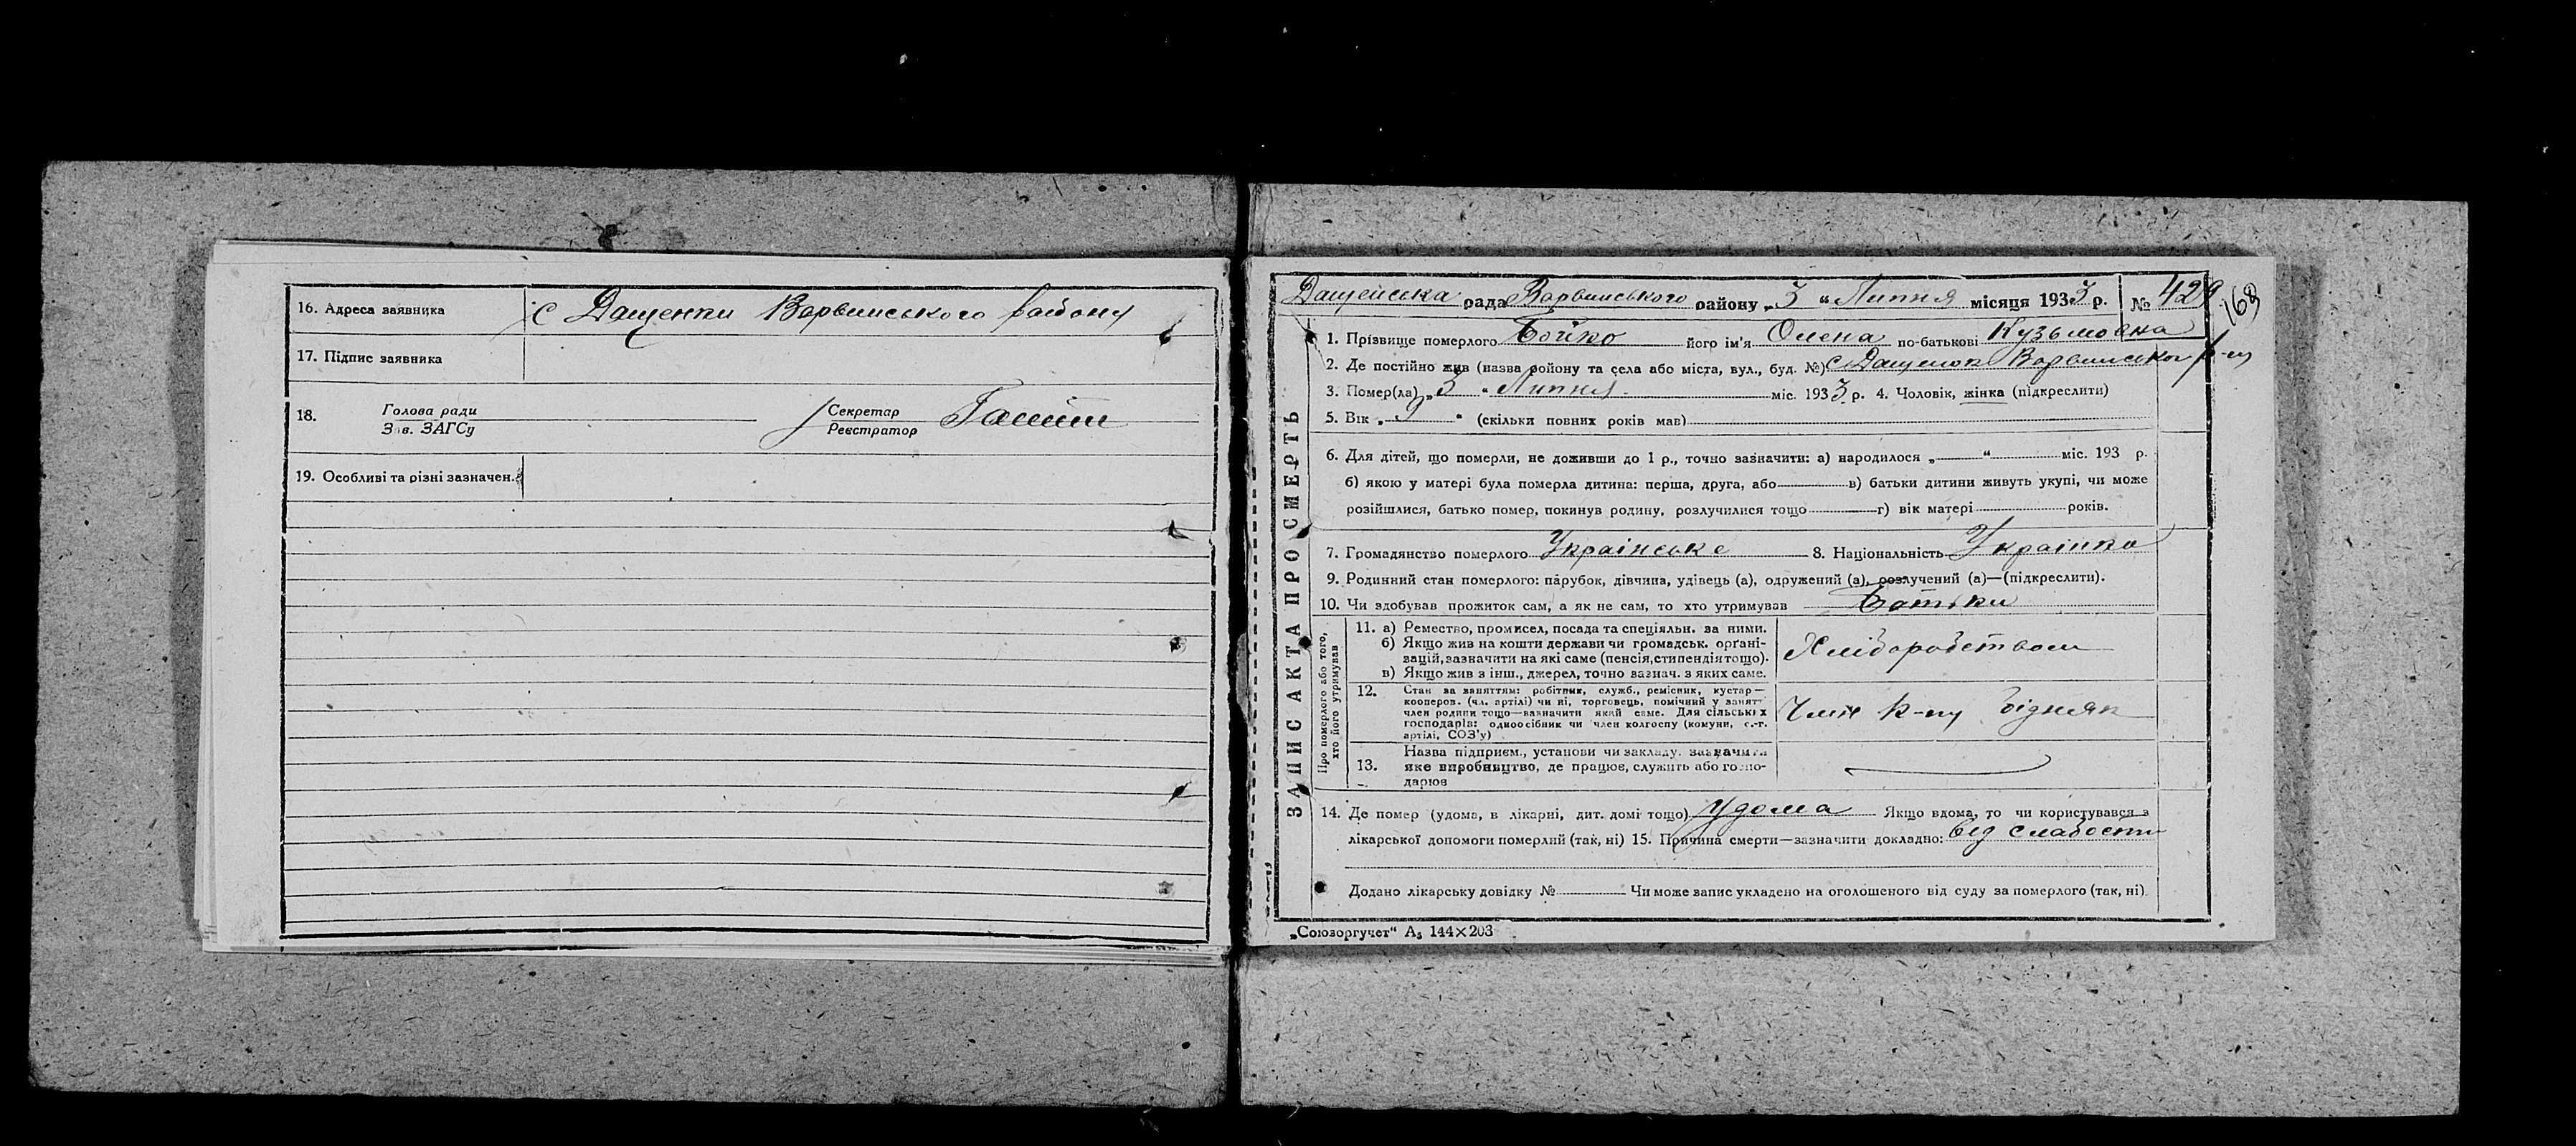 16. Адреса заявника с Дащенки Варвинського району
17. Підпис заявника
18. Голова ради Секретар
Зав. ЗАГСу Реєстратор
19. Особливі та різні зазначен.
Дащенська рада Варвинського району „3“ Липня місяця 1933 р. № 429
168
ЗАПИС АКТА ПРО СМЕРТЬ
1. Прізвище померлого Бойко його ім'я Олена по-батькові Кузьмовна
2. Де постійно жив (назва району та села або міста, вул., буд. №) с Дащенки Варвинського р-ну
3. Помер(ла) „3“ Липня міс. 1933 р. 4. Чоловік, жінка (підкреслити)
5. Вік „9“ (скільки повних років мав)
6. Для дітей, що померли, не доживши до 1 р., точно зазначити: а) народилося „ “ міс. 193 р.
б) якою у матері була померла дитина: перша, друга, або в) батьки дитини живуть укупі, чи може
розійшлися, батько помер, покинув родину, розлучилися тощо г) вік матері років.
7. Громадянство померлого Українське 8. Національність Українка
9. Родинний стан померлого: парубок, дівчина, удівець (а), одружений (а), розлучений (а)—(підкреслити).
10. Чи здобував прожиток сам, а як не сам, то хто утримував Батьки
Про померлого або того,
хто його утримував
11. а) Ремество, промисел, посада та спеціяльн. за ними.
б) Якщо жив на кошти держави чи громадськ. органі-
зацій, зазначити на які саме (пенсія, стипендія тощо).
в) Якщо жив з інш., джерел, точно зазнач. з яких саме.
Хліборобством
12. Стан за заняттям: робітник, служб., ремісник, кустар—
кооперов. (чл. артілі) чи ні, торговець, помічний у занятт
член родини тощо—зазначити який саме. Для сільських
господарів: одноосібник чи член колгоспу (комуни, с.-г.
артілі, СОЗ'у)
Член к-пу бідняк
13. Назва підприєм., установи чи закладу, зазначити
яке виробництво, де працює, служить або госпо-
дарює
14. Де помер (удома, в лікарні, дит. домі тощо) Удома Якщо вдома, то чи користувався з
лікарської допомоги померлий (так, ні) 15. Причина смерти—зазначити докладно: від слабости
Додано лікарську довідку № Чи може запис укладено на оголошеного від суду за померлого (так, ні)
„Союзоргучет“ А₅ 144×203